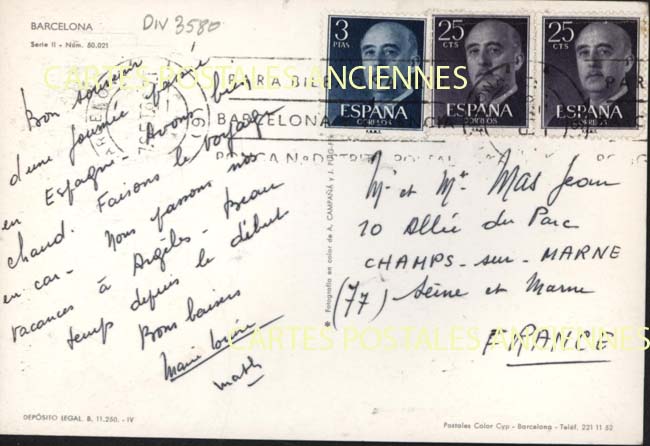 BARCELONA
DIV 3580
Serie II - Núm. 50.021
Bon souvenir
d'une journée passée
en Espagne. Avons bien
chaud. Faisons le voyage
en car. Nous passons nos
vacances à Argèles. Beau
temps depuis le début
Bons baisers
Marie
3 PTAS
ESPAÑA
CORREOS
F.N.M.T.
25 CTS
ESPAÑA
CORREOS
F.N.M.T.
25 CTS
ESPAÑA
CORREOS
F.N.M.T.
PARA BIEN
BARCELONA
PONGA Nº DISTRITO POSTAL
CARTES POSTALES ANCIENNES
Mr et Me Mas Jean
10 Allée du Parc
CHAMPS-sur-MARNE
(77) Seine et Marne
FRANCE
CARTES POSTALES ANCIENNES
Fotografía en color de A. CAMPAÑÁ y J. PUIG-FERRÁN
DEPÓSITO LEGAL. B. 11.250. - IV
Postales Color Cyp - Barcelona - Teléf. 221 11 52